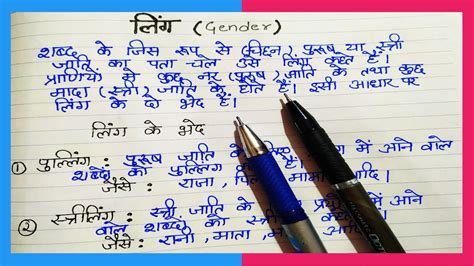 लिंग (Gender)
शब्द के जिस रूप से (चिह्न) पुरूष या स्त्री
जाति का पता चले उसे लिंग कहते हैं।
प्राणियों से कुछ नर (पुरूष) जाति के तथा कुछ
मादा (स्त्री) जाति के होते हैं। इसी आधार पर
लिंग के दो भेद हैं।
लिंग के भेद
① पुल्लिंग : पुरूष जाति के में आने वाले
शब्दों को पुल्लिंग हैं।
जैसे : राजा, मामा आदि।
② स्त्रीलिंग : स्त्री जाति के में आने
वाले शब्दों को
जैसे : रानी, माता,